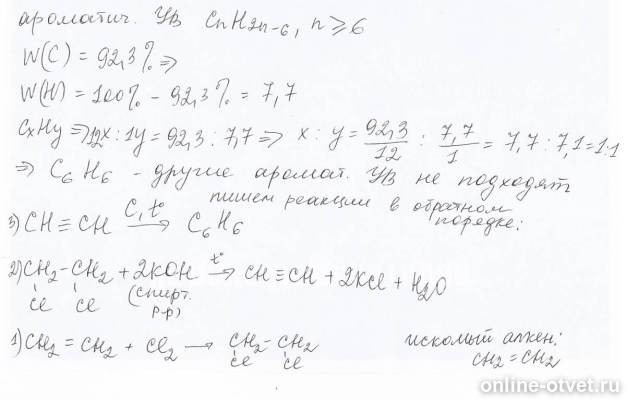 ароматич. УВ CnH2n-6, n ⩾ 6
W(C) = 92,3% ⇒
W(H) = 100% - 92,3% = 7,7
CxHy ⇒ 12x : 1y = 92,3 : 7,7 ⇒ x : y = 92,3/12 : 7,7/1 = 7,7 : 7,1 = 1:1
⇒ C6H6 - другие аромат. УВ не подходят
пишем реакции в обратном
порядке:
3) CH ≡ CH C, t° → C6H6
2) CH2-CH2 + 2KOH t° → CH ≡ CH + 2KCl + H2O
Cl Cl (спирт.
р-р)
1) CH2 = CH2 + Cl2 → CH2-CH2
Cl Cl
искомый алкен:
CH2 = CH2
online-otvet.ru